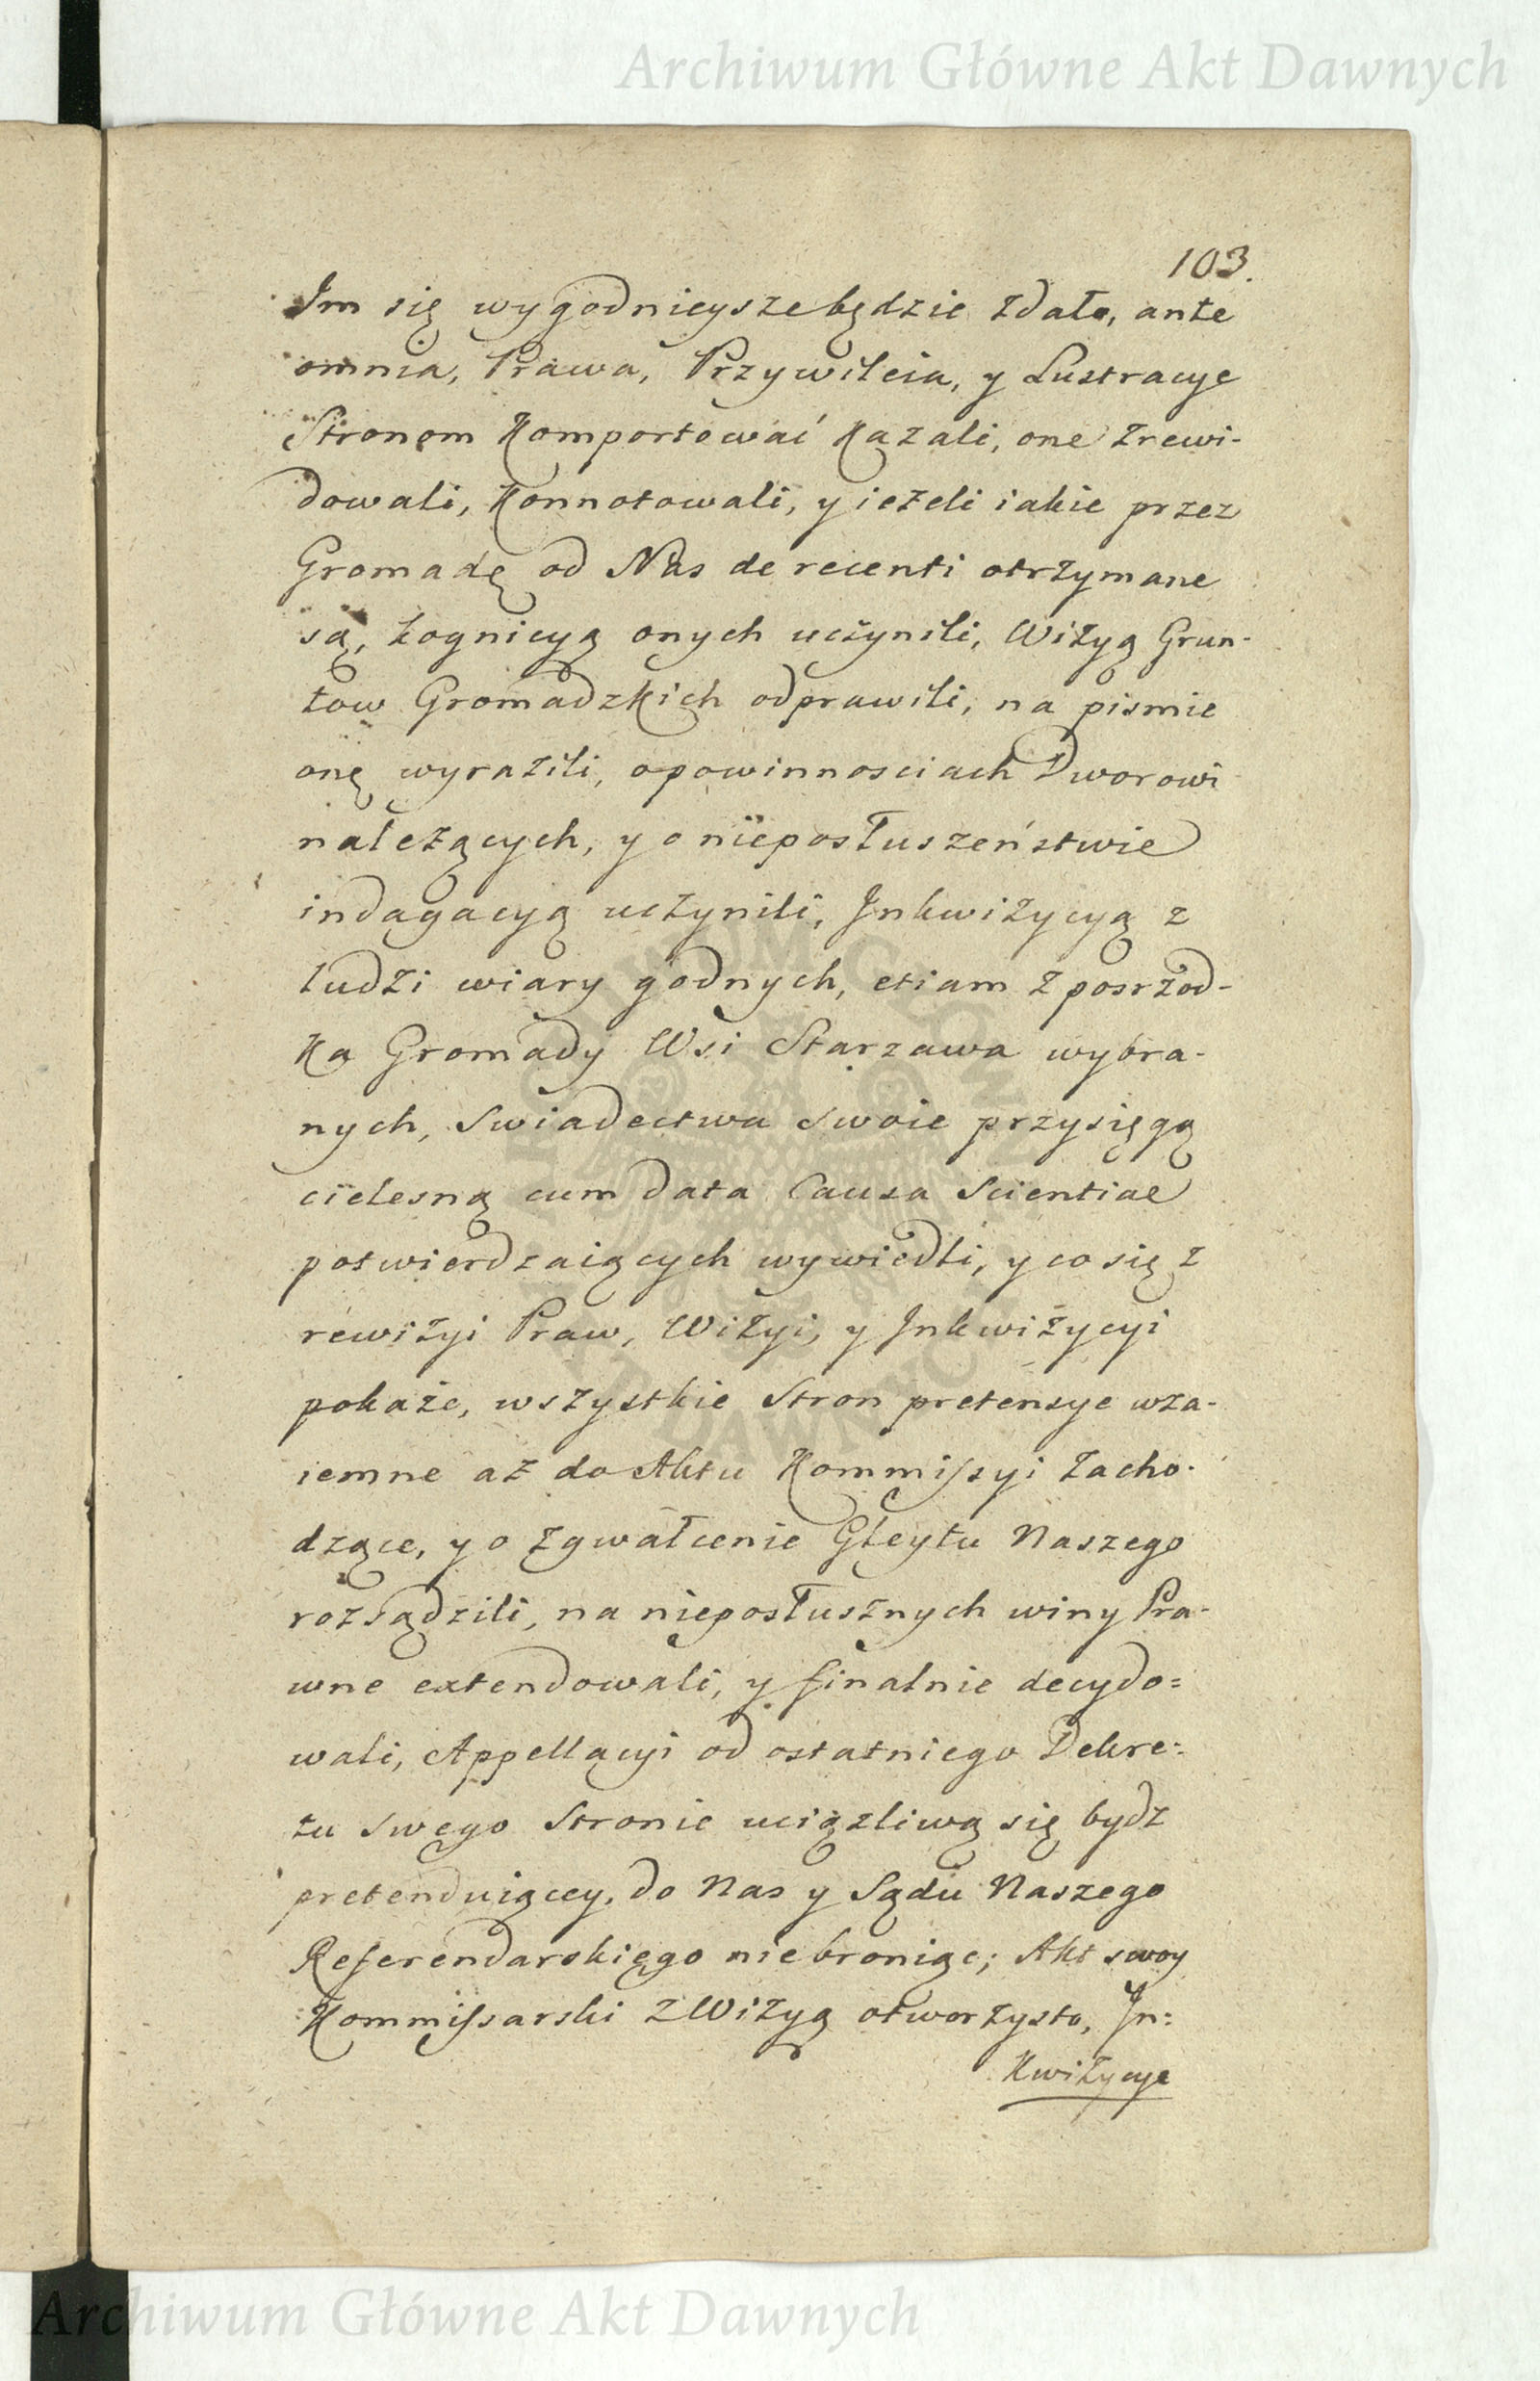 Archiwum Główne Akt Dawnych
103.
Im się wygodnieysze będzie zdało, ante
omnia, Prawa, Przywileia, y Lustracye
Stronom Komportować Kazali, one zrewi-
dowali, Konnotowali, y ieżeli iakie przez
Gromadę od Nas de recenti otrzymane
są, Kognicyą onych uczynili, Wizyą Grun-
tow Gromadzkich odprawili, na pismie
onę wyrazili, o powinnosciach Dworowi
należących, y o nieposłuszeństwie
indagacyą uczynili, Inkwizycyą z
ludzi wiary godnych, etiam z posrzod-
Ka Gromady Wsi Starzawa wybra-
nych, Swiadectwa Swoie przysięgą
cielesną cum data Causa Scientiae
potwierdzaiących wywiedli, y co się z
rewizyi Praw, Wizyi, y Inkwizycyi
pokaże, wszystkie Stron pretensye wza-
iemne aż do Aktu Kommissyi zacho-
dzące, y o zgwałcenie Gleytu Naszego
rozsądzili, na nieposłusznych winy Pra-
wne extendowali, y finalnie decydo=
wali, Appellacyi od ostatniego Dekre=
tu Swego Stronie uciązliwą się bydz
pretenduiącey, do Nas y Sądu Naszego
Referendarskiego niebroniąc; Akt swoy
Kommissarski z Wizyą otworzysto, In=
Kwizycye
ARCHIWUM GŁÓWNE AKT DAWNYCH
Archiwum Główne Akt Dawnych